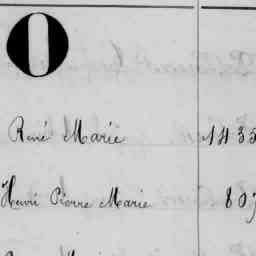 O
René Marie 1435
Henri Pierre Marie 807